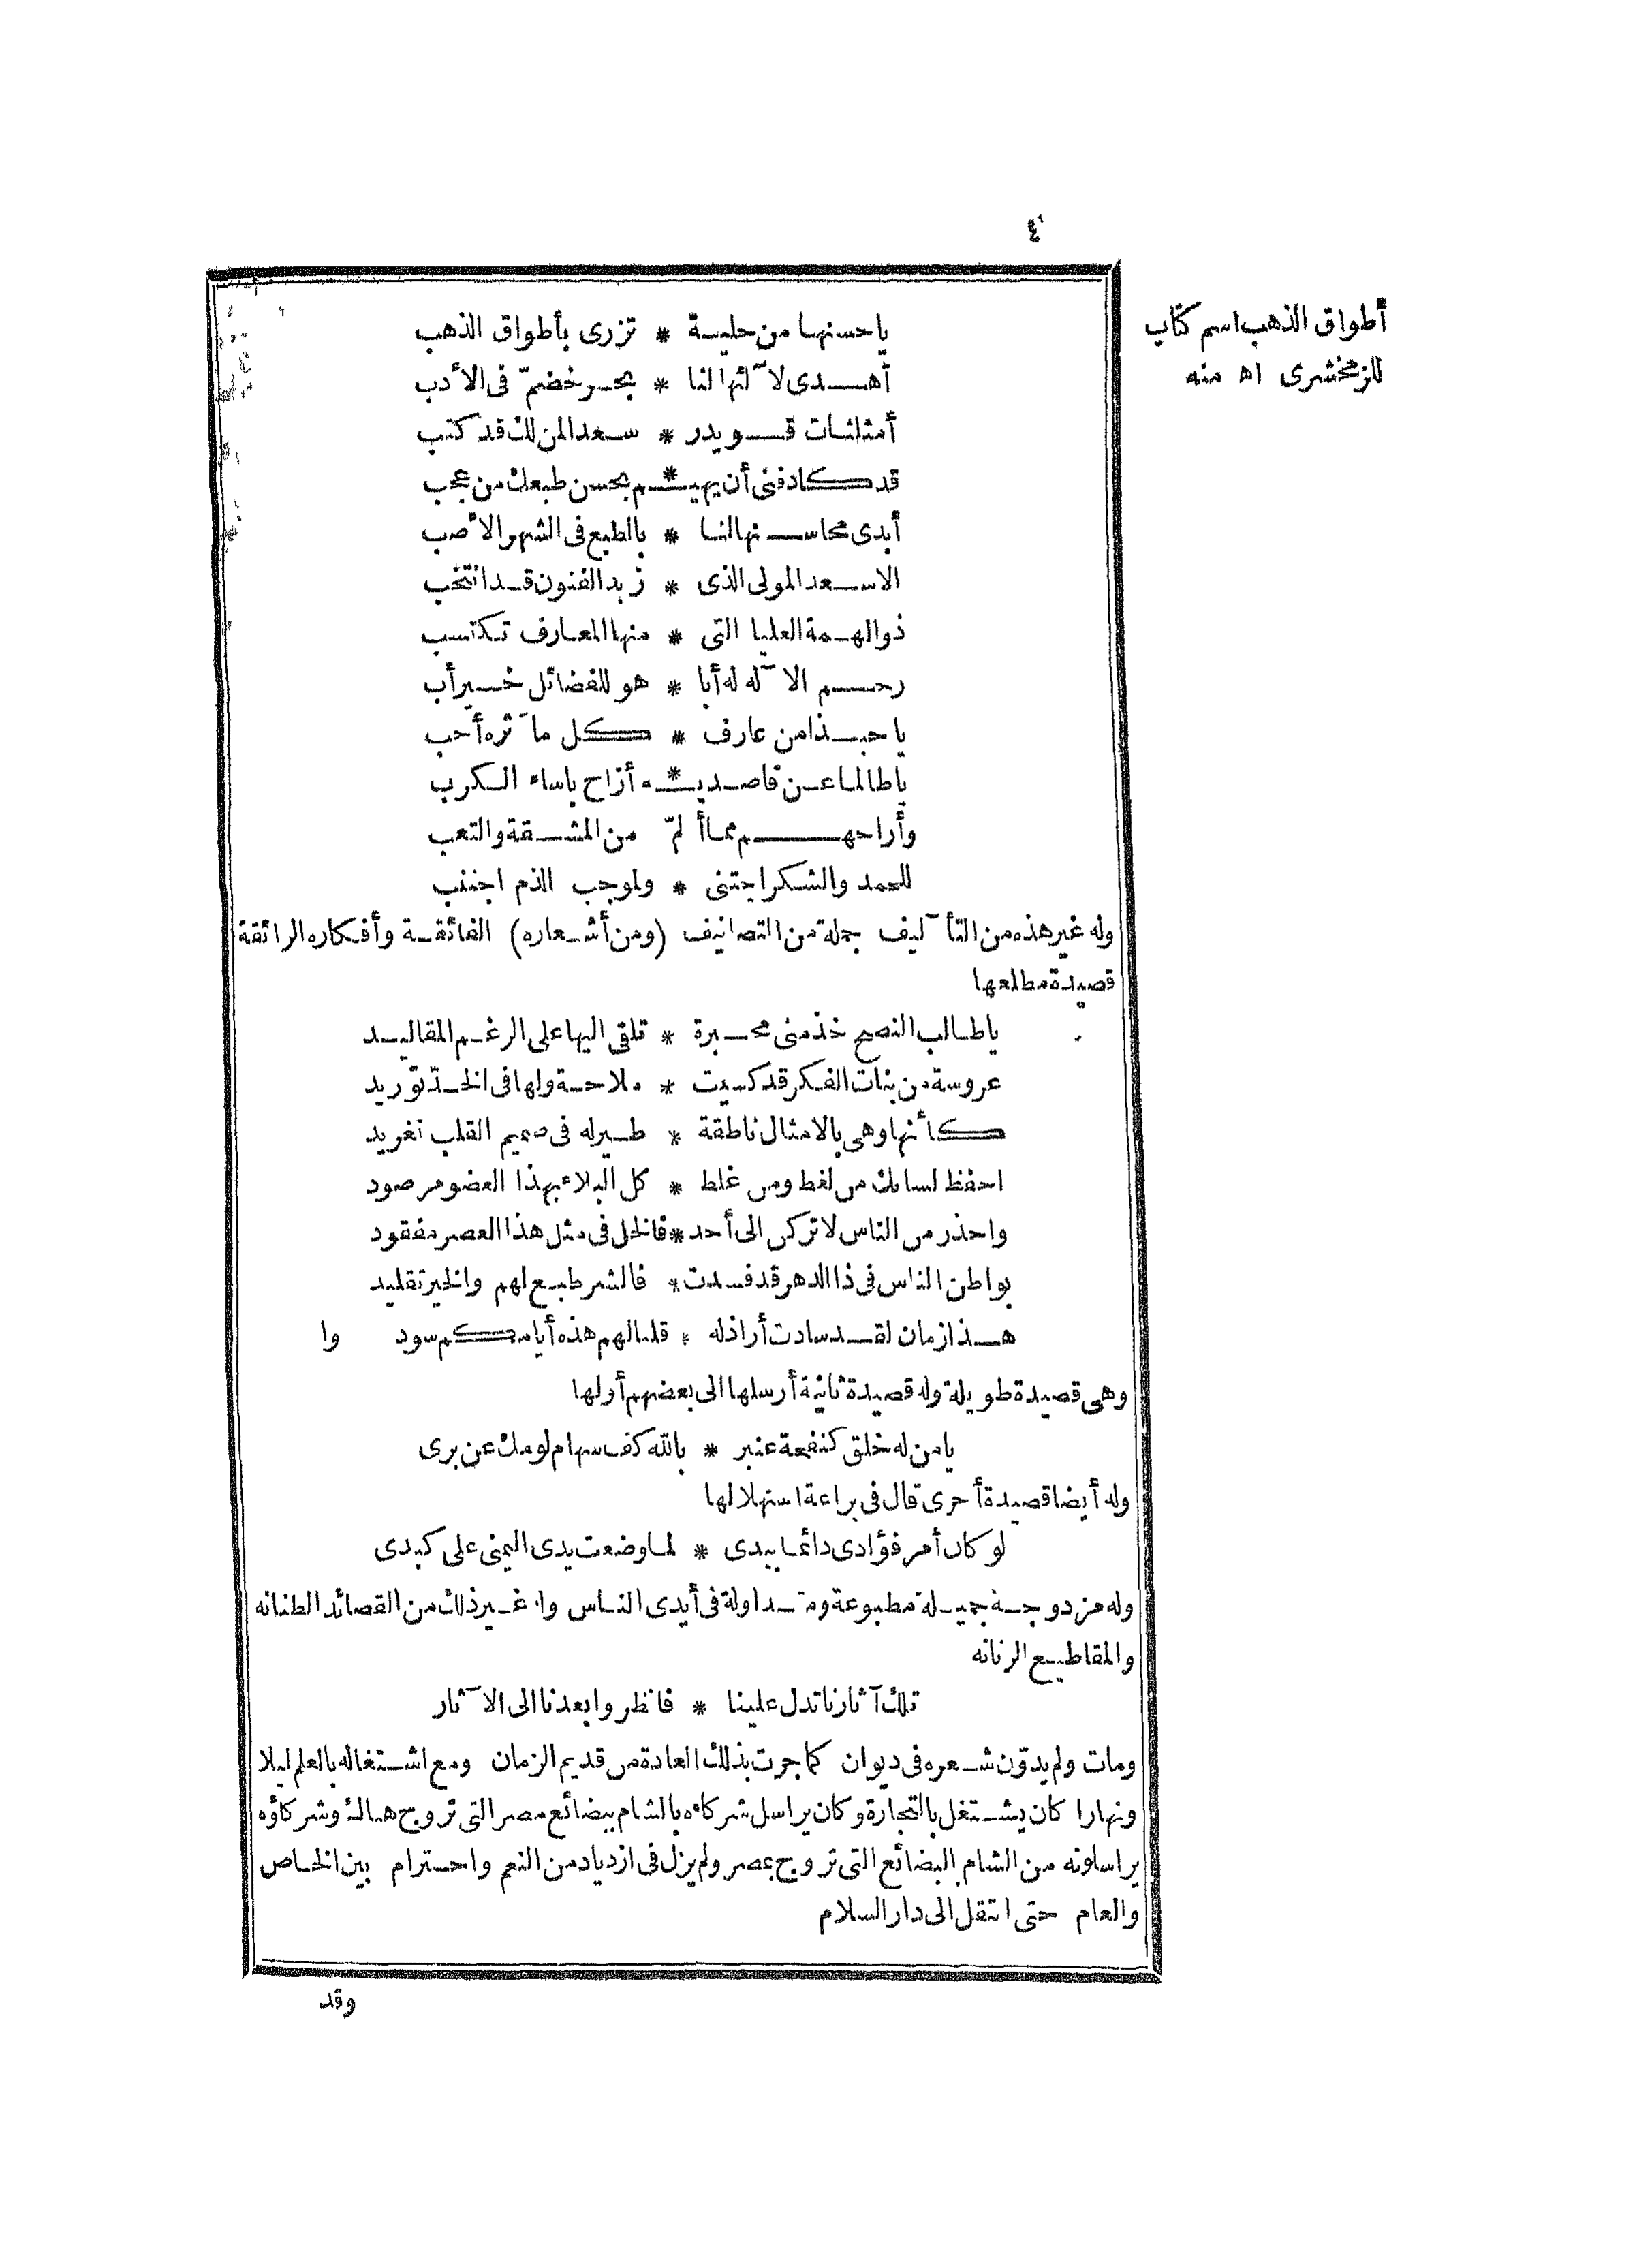 ٤
أطواق الذهب اسم كتاب
للزمخشرى اه منه
ياحسنها من حلية * تزرى بأطواق الذهب
أهدى لآلئها لنا * بحر خضمّ فى الأدب
أمثلثات قويدر * سعد المن لك قد كتب
قد كاد فنى أن يهيم * بحسن طبعك من عجب
أبدى محاسنها لنا * بالطبع فى الشهر الأصب
الاسعد المولى الذى * زبد الفنون قد انتخب
ذو الهمة العليا التى * منها المعارف تكتسب
رحم الآله له أبا * هو للفضائل خير أب
يا حبذا من عارف * كل مآثره أحب
ياطالما عن قاصديه * أزاح باساء الكرب
وأراحهم مما ألمّ من المشقة والتعب
للحمد والشكر اجتنى * ولموجب الذم اجتنب
وله غير هذه من التآليف جملة من التصانيف (ومن أشعاره) الفائقة وأفكاره الرائقة
قصيدة مطلعها
ياطالب النصح خذ منى محبرة * تلقى اليها على الرغم المقاليد
عروسة من بنات الفكر قد كسيت * ملاحة ولها فى الخدّ توريد
كأنها وهى بالامثال ناطقة * طير له فى صميم القلب تغريد
احفظ لسانك من لغط ومن غلط * كل البلاء بهذا العضو مرصود
واحذر من الناس لا تركن الى أحد * فالخل فى مثل هذا العصر مفقود
بواطن الناس فى ذا الدهر قد فسدت * فالشر طبع لهم والخير تقليد
هذا زمان لقد سادت أراذله * قلنا لهم هذه أيامكم سود وا
وهى قصيدة طويلة وله قصيدة ثانية أرسلها الى بعضهم أولها
يامن له خلق كنفحة عنبر * بالله كف سهام لومك عن برى
وله أيضا قصيدة أخرى قال فى براعة استهلالها
لو كان أمر فؤادى دائما بيدى * لما وضعت يدى اليمنى على كبدى
وله مزدوجة جميلة مطبوعة ومتداولة فى أيدى الناس وله غير ذلك من القصائد الطنانه
والمقاطيع الرنانه
تلك آثارنا تدل علينا * فانظروا بعدنا الى الآثار
ومات ولم يدوّن شعره فى ديوان كما جرت بذلك العادة من قديم الزمان ومع اشتغاله بالعلم ليلا
ونهارا كان يشتغل بالتجارة وكان يراسل شركاءه بالشام ببضائع مصر التى تروج هناك وشركاؤه
يراسلونه من الشام البضائع التى تروج بمصر ولم يزل فى ازدياد من النعم واحترام بين الخاص
والعام حتى انتقل الى دار السلام
وقد